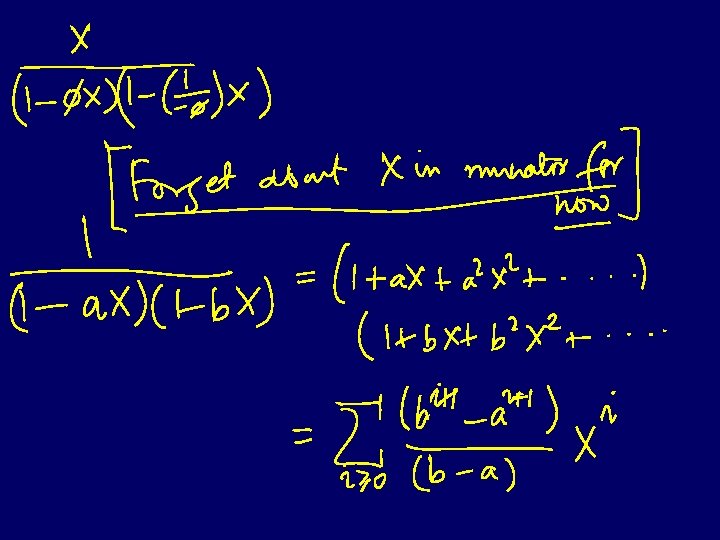 x
(1-φx)(1-(1/-φ)x)
[Forget about X in numerator for
now]
1
(1-ax)(1-bx) = (1+ax+a²x²+.....)
(1+bx+b²x²+....
= ∑ (bⁱ⁺¹-aⁱ⁺¹) xⁱ
i≥0 (b-a)